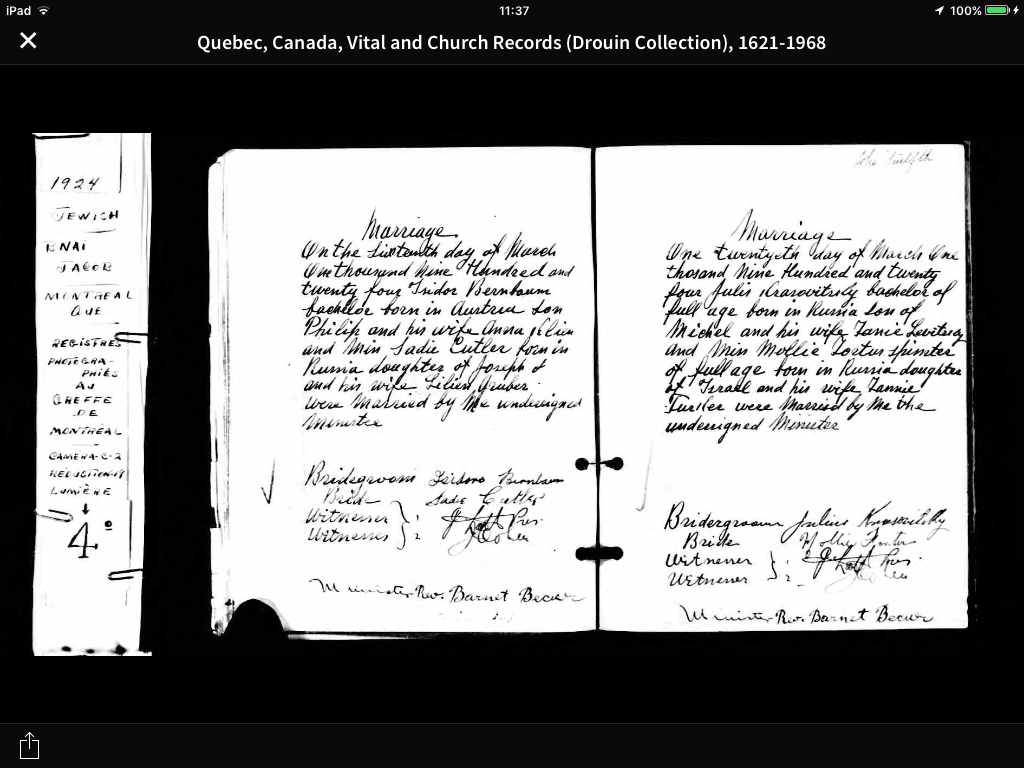 iPad
11:37
100%
Quebec, Canada, Vital and Church Records (Drouin Collection), 1621-1968
1924
JEWISH
BNAI
JACOB
MONTREAL
QUE
REGISTRES
PHOTOGRA-
PHIÉS
AU
GREFFE
DE
MONTRÉAL
CAMERA-C-2
REDUCTION-19
LUMIÈRE
4°
Marriage
On the Sixteenth day of March
One thousand Nine Hundred and
twenty four Isidor Bernbaum
bachelor born in Austria son
Philip and his wife Anna
and Miss Sadie Cutler born in
Russia daughter of Joseph
and his wife Lilien Gruber
were Married by Me undersigned
Minister
Bridegroom Isidore Birnbaum
Bride Sadie Cutler
Witnesses 1 Pres.
Witnesses 2 Cohen
Minister Rev. Barnet Becker
the twelfth
Marriage
One twentyeth day of March One
thosand Nine Hundred and twenty
four Julis Krasovitsky bachelor of
full age born in Russia son of
Michel and his wife Fanie
and Miss Mollie spinster
of full age born in Russia daughter
of Israel and his wife Fannie
were Married by Me the
undersigned Minister
Bridergroom Julius
Bride Mollie
Witnesser 1 Pres.
Witnesser 2 Cohen
Minister Rev. Barnet Becker